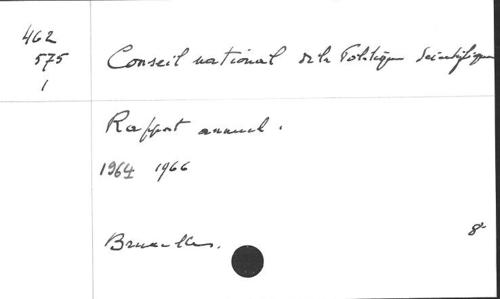 462
575
1
Conseil national de la Politique Scientifique
Rapport annuel.
1964 1966
Bruxelles.
8°